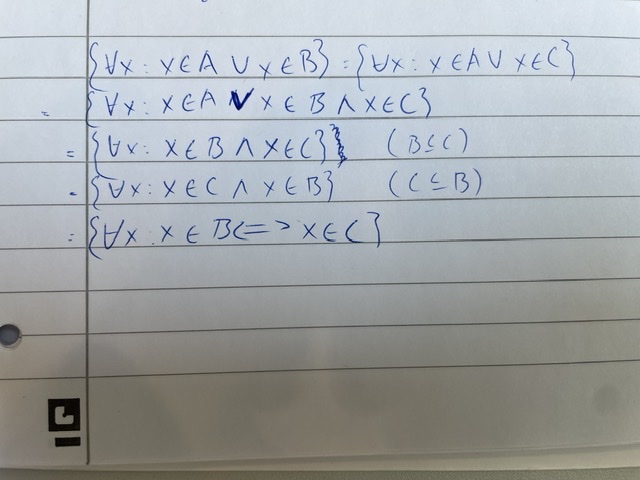 {∀x: x∈A ∨ x∈B} = {∀x: x∈A ∨ x∈C}
= {∀x: x∈A ∨ x∈B ∧ x∈C}
= {∀x: x∈B ∧ x∈C} (B⊆C)
= {∀x: x∈C ∧ x∈B} (C⊆B)
= {∀x: x∈B <=> x∈C}